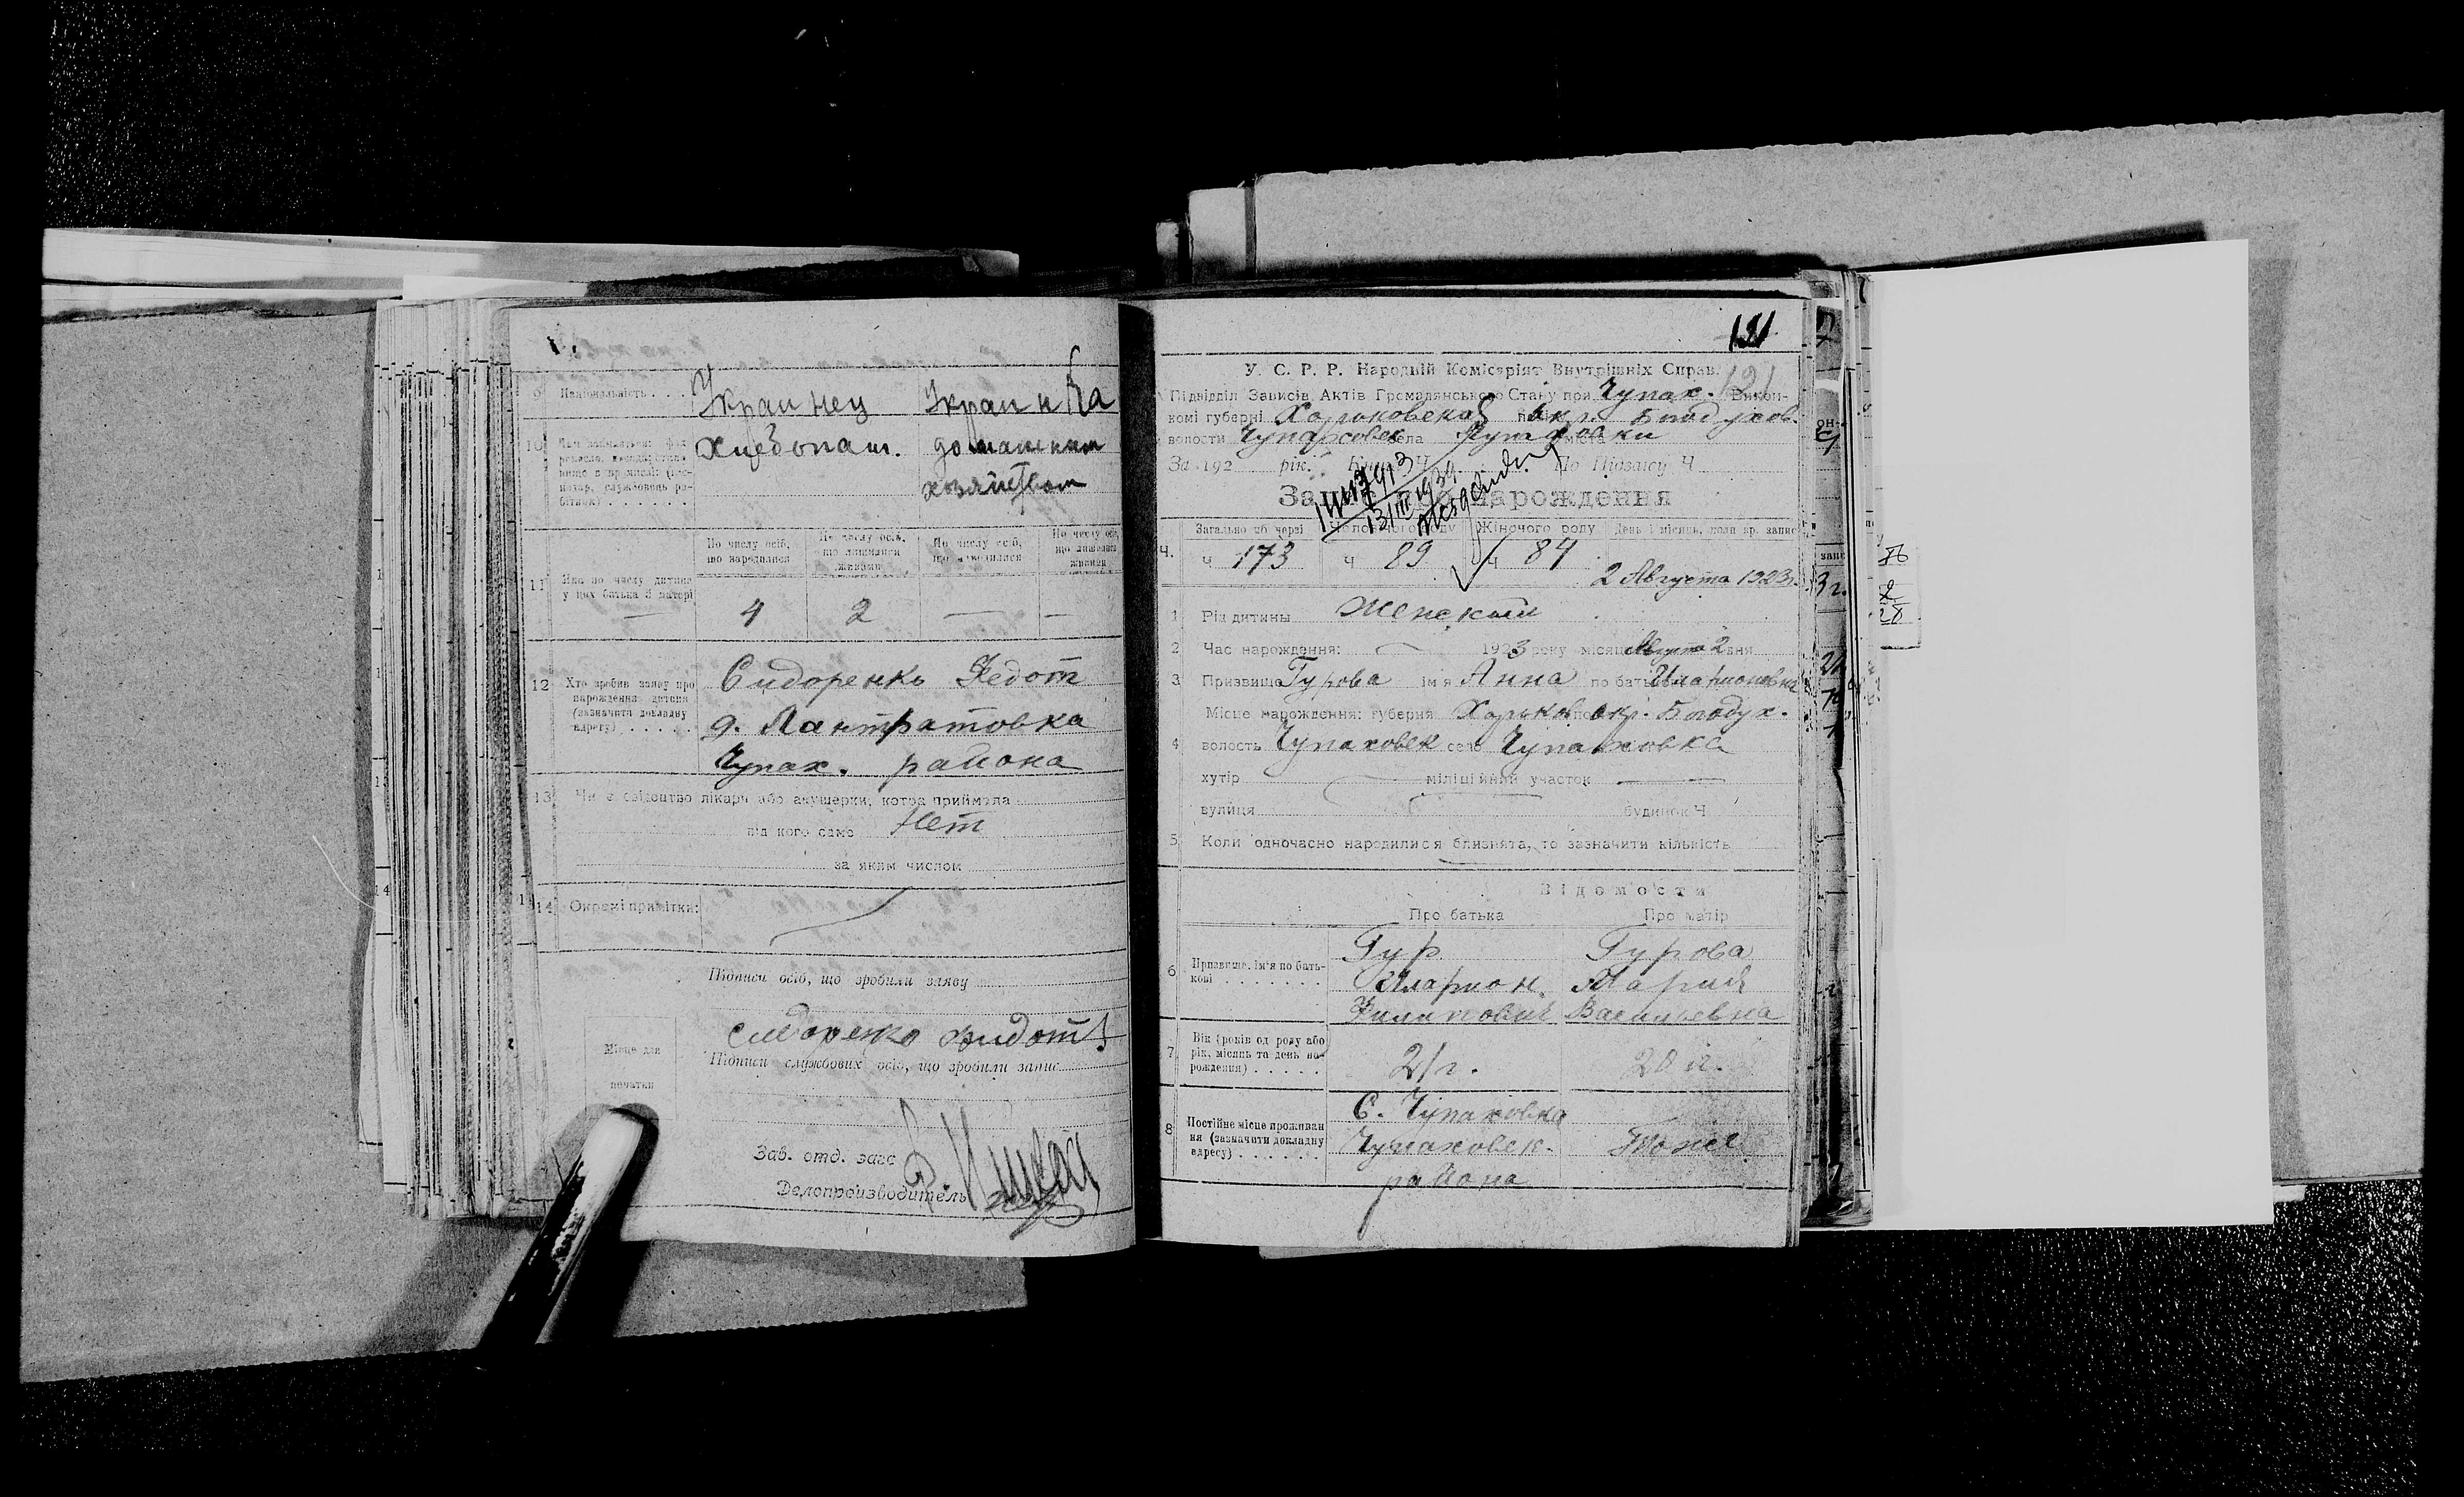 9 Національність . . . Украинец Украинка
10 Хлебопаш. домашним
хозяйством
По числу осіб, що народилися
По числу осіб, що лишилися живими
По числу осіб,
По числу осіб, що лишилися живими
11 Яка по числу дитина у цих батька й матері
— 4 2 — —
12 Хто зробив заяву про народження дитини (зазначити докладну адресу) . . . . .
Сидоренко Федот
д. Лантратовка
Чупах. района
13 Чи є свідоцтво лікаря або акушерки, котра приймала
від кого саме Нет
за яким числом
14 Окремі примітки:
Підписи осіб, що зробили заяву
сидоренко
Підписи службових осіб, що зробили запис
Місце для
печатки
Зав. отд. загс
Делопроизводитель
121
У. С. Р. Р. Народній Комісаріят Внутрішніх Справ. 121
Підвідділ Записів Актів Громадянського Стану при Чупах. Викон-
комі губерні Харьковской окр. Богодухов.
волости села Чупаховки
За 192 рік. По Підпису Ч
13/III 1934
нарождення
Загально об черзі Жіночого роду День і місяць, коли вр. запис
Ч 173 Ч 89 Ч 84
2 Августа 1923 г.
1 Рід дитины Женский
2 Час нарождення: 1923 року місяц Августа 2 дня
3 Призвище Гурова ім'я Анна по батькові Иларионовна
Місце нарождення: губерня Харьков. окр. Богодух.
4 волость Чупаховск село Чупаховка
хутір міліційний участок
вулиця будинок Ч
5 Коли одночасно народилися близнята, то зазначити кількість
Відомости
Про батька Про матір
6 Призвище, ім'я по батькові . . . . . . .
Гур Гурова
Иларион Мария
Филипович Васильевна
7 Вік (років од роду або рік, місяць та день народження) . . . . .
21 г. 20 л.
8 Постійне місце проживання (зазначити докладну адресу) . . . . . .
С. Чупаховка
Чупаховск. Тоже
района